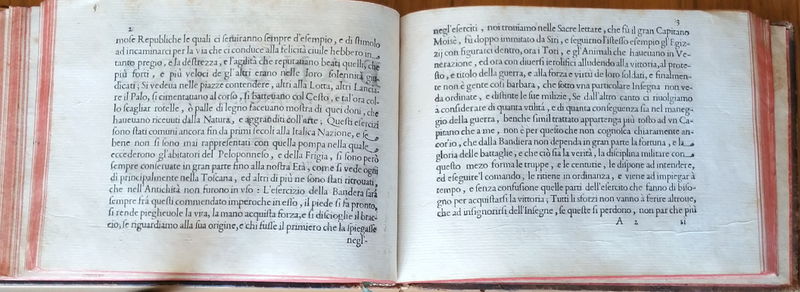 2
mose Republiche le quali ci seruiranno sempre d'esempio, e di stimolo
ad incaminarci per la via che ci conduce alla felicità ciuile hebbero in
tanto pregio, e la destrezza, e l'agilità che reputauano beati quelli, che
più forti, e più veloci de gl'altri erano nelle loro solennità giu-
dicati; Si vedeua nelle piazze contendere, altri alla Lotta, altri Lancia-
re il Palo, si cimentauano al corso, si batteuano col Cesto, e tal'ora col-
lo scagliar rotelle, ò palle di legno faceuano mostra di quei doni, che
haueuano riceuuti dalla Natura, e aggranditi coll'arte, Questi esercizi
sono stati comuni ancora fin da primi secoli alla Italica Nazione, e se
bene non si sono mai rappresentati con quella pompa nella quale
eccederono gl'abitatori del Peloponneso, e della Frigia, si sono però
sempre conseruate in gran parte fino alla nostra Età, come si vede ogni
dì principalmente nella Toscana, ed altri di più ne sono stati ritrouati,
che nell'Antichità non furono in vso: L'esercizio della Bandera sarà
sempre frà questi commendato imperoche in esso, il piede si fa pronto,
si rende piegheuole la vita, la mano acquista forza, e si discioglie il brac-
cio, se riguardiamo alla sua origine, e chi fusse il primiero che la spiegasse
negl-
3
negl'eserciti, noi trouiamo nelle Sacre lettare, che fù il gran Capitano
Moisè, fù doppo immitato da Siri, e seguirno l'istesso esempio gl'Egiz-
zij con figurarci dentro, ora i Tori, e gl'Animali che haueuano in Ve-
nerazione, ed ora con diuersi ierolifici alludendo alla vittoria, al prote-
sto, e titolo della guerra, e alla forza e virtù de loro soldati, e finalmen-
te non è gente così barbara, che sotto vna particolare Insegna non ve-
da ordinate, e distinte le sue milizie, Se dall'altro canto ci riuolgiamo
à considerare di quanta vtilità, e di quanta conseguenza sia nel maneg-
gio della guerra, benche simil trattato appartenga più tosto ad vn Ca-
pitano che a me, non è per questo che non cognosca chiaramente an-
cor'io, che dalla Bandiera non dependa in gran parte la fortuna, e la
gloria delle battaglie, e che ciò sia la verità, la disciplina militare con
questo mezo forma le truppe, e le centurie, le dispone ad intendere,
ed eseguire'l comando, le ritiene in ordinanza, e viene ad impiegar à
tempo, e senza confusione quelle parti dell'esercito che fanno di biso-
gno per acquistarsi la vittoria; Tutti li sforzi non vanno à ferire altroue,
che ad insignorirsi dell'Insegne, se queste si perdono, non par che più
A 2 si